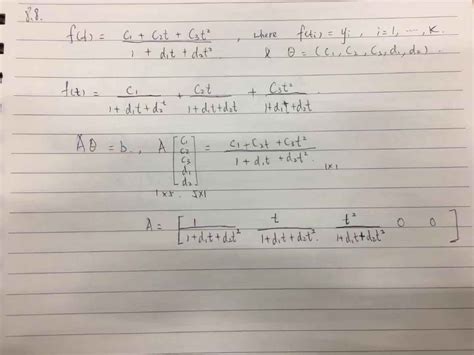 8.8.
f(t) = (c₁ + c₂t + c₃t²) / (1 + d₁t + d₂t²) , where f(tᵢ) = yᵢ , i=1, ..., K.
& θ = (c₁, c₂, c₃, d₁, d₂).
f(t) = c₁ / (1+d₁t+d₂t²) + c₂t / (1+d₁t+d₂t) + c₃t² / (1+d₁t+d₂t)
Aθ = b , A [c₁ c₂ c₃ d₁ d₂] = (c₁ + c₂t + c₃t²) / (1 + d₁t + d₂t²)
1×5 5×1 1×1
A = [ 1 / (1+d₁t+d₂t²) t / (1+d₁t+d₂t²) t² / (1+d₁t+d₂t²) 0 0 ]